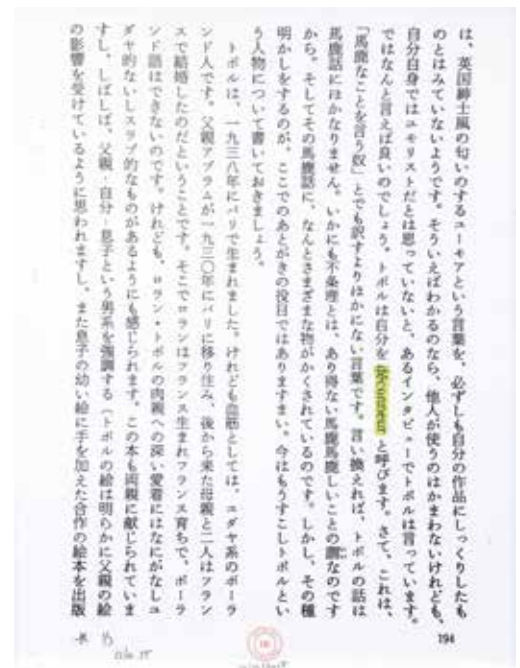 は、英国紳士風の匂いのするユーモアという言葉を、必ずしも自分の作品にしっくりしたも
のとはみていないようです。そういえばわかるのなら、他人が使うのはかまわないけれども、
自分自身ではユモリストだとは思っていないと、あるインタビューでトポルは言っています。
ではなんと言えば良いのでしょう。トポルは自分を と呼びます。さて、これは、
「馬鹿なことを言う奴」とでも訳すよりほかにない言葉です。言い換えれば、トポルの話は
馬鹿話にほかなりません。いかにも不条理とは、あり得ない馬鹿馬鹿しいことの謂なのです
から。そしてその馬鹿話に、なんとさまざまな物がかくされているのです。しかし、その種
明かしをするのが、ここでのあとがきの役目ではありますまい。今はもうすこしトポルとい
う人物について書いておきましょう。
トポルは、一九三八年にパリで生まれました。けれども血筋としては、ユダヤ系のポーラ
ンド人です。父親アブラムが一九三〇年にパリに移り住み、後から来た母親と二人はフラン
スで結婚したのだということです。そこでロランはフランス生まれフランス育ちで、ポーラ
ンド語はできないのです。けれども、ロラン・トポルの肉親への深い愛着にはなにがなしユ
ダヤ的ないしスラブ的なものがあるようにも感じられます。この本も両親に献じられていま
すし、しばしば、父親・自分・息子という男系を強調する(トポルの絵は明らかに父親の絵
の影響を受けているように思われますし、また息子の幼い絵に手を加えた合作の絵本を出版
194